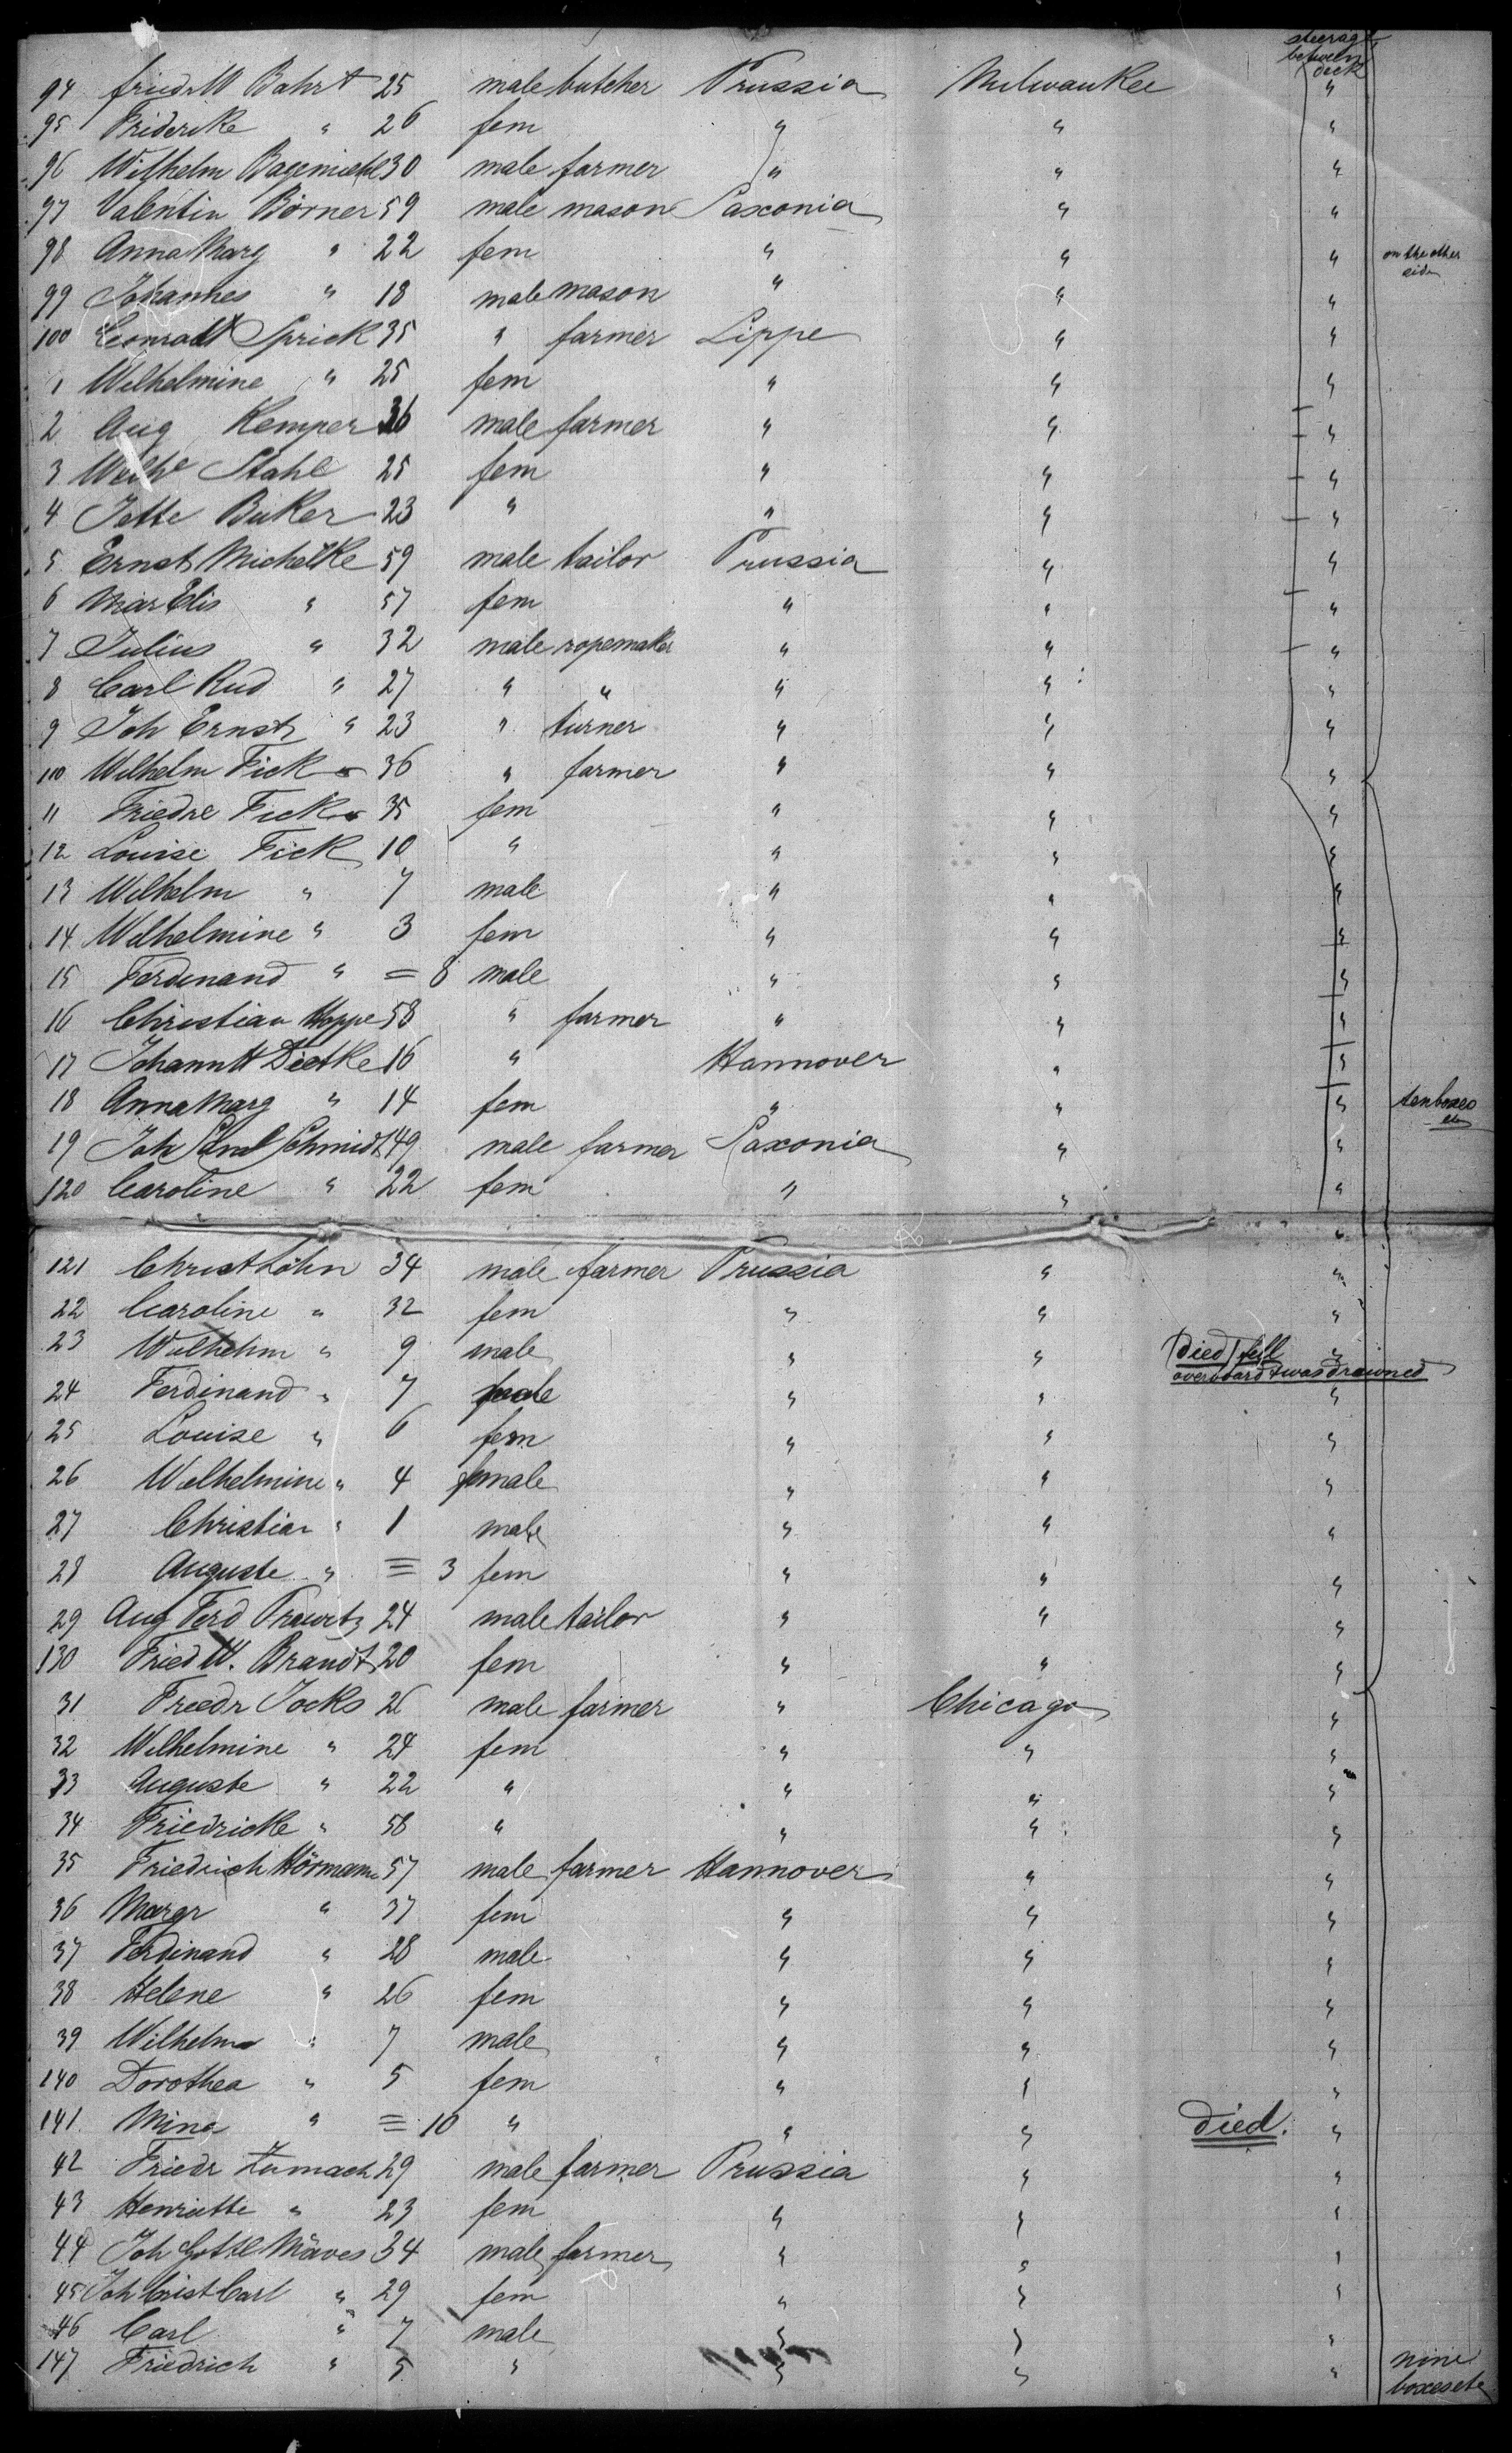 steerage
between
deck
94 Friedr W Bahrt 25 male butcher Prussia Milwaukee "
95 Friderike " 26 fem " " "
96 Wilhelm 30 male farmer " " "
97 Valentin Börner 59 male mason Saxonia " "
98 Anna Marg " 22 fem " " " on the other
side
99 Johannes " 18 male mason " " "
100 Conradt Sprick 35 " farmer Lippe " "
1 Wilhelmine " 25 fem " " "
2 Aug Kemper 36 male farmer " " "
3 Wilhe Stahl 25 fem " " "
4 Jette Buker 23 " " " "
5 Ernst Michelke 59 male tailor Prussia " "
6 Mar Elis " 57 fem " " "
7 Julius " 32 male ropemaker " " "
8 Carl Rud " 27 " " " " "
9 Joh Ernst " 23 " turner " " "
110 Wilhelm Fick 36 " farmer " " "
11 Friedre Fick 35 fem " " "
12 Louise Fick 10 " " " "
13 Wilhelm " 7 male " " "
14 Wilhelmine " 3 fem " " "
15 Ferdinand " = 8 male " " "
16 Christian Hoppe 58 " farmer " " "
17 Johann H Dietke 16 " Hannover " "
18 Anna Marg " 14 fem " " " ten boxes
etc
19 Joh Schmidt 49 male farmer Saxonia " "
120 Caroline " 22 fem " " "
"
121 Christ Löhn 34 male farmer Prussia " "
22 Caroline " 32 fem " " "
23 Wilhelm " 9 male " " (died) fell "
overboard & was drowned
24 Ferdinand " 7 male " " "
25 Louise " 6 fem " " "
26 Wilhelmine " 4 female " " "
27 Christian " 1 male " " "
28 Auguste " = 3 fem " " "
29 Aug Ferd 24 male tailor " " "
130 Fried W. Brandt 20 fem " " "
31 Friedr Jocks 26 male farmer " Chicago "
32 Wilhelmine " 24 fem " " "
33 Auguste " 22 " " " "
34 Friedricke " 58 " " " "
35 Friedrich Hörmann 57 male farmer Hannover " "
36 Margr " 37 fem " " "
37 Ferdinand " 28 male " " "
38 Helene " 26 fem " " "
39 Wilhelm " 7 male " " "
140 Dorothea " 5 fem " " "
141 Mina " = 10 " " " died. "
42 Friedr Zumach 29 male farmer Prussia " "
43 Henriette " 23 fem " " "
44 Joh Gottl Mäves 34 male farmer " " "
45 Joh Crist Carl " 29 fem " " "
46 Carl " 7 male " " "
147 Friedrich " 5 " " " " nine
boxes etc